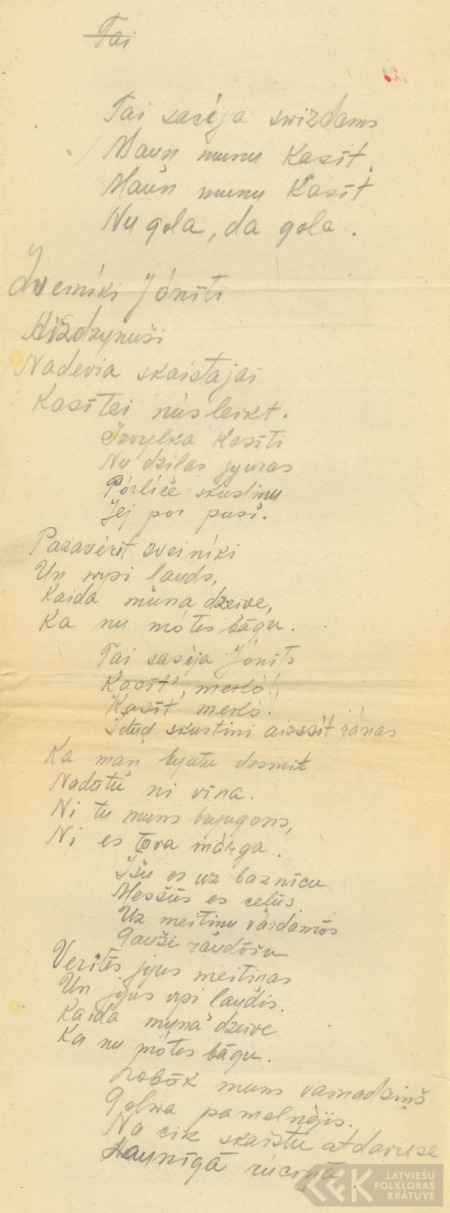 Tai
Tai sacēja swizdams
Maun munu Kasīt,
Maun munu Kasīt
Nu gola, da gola.
Zveinīki Jōnīti
Aizdzynuši
Nadevia skaistajai
Kasītei nūsleikt.
Izvylka Kasīti
Nu dzilas jyuras
Pōrlīce skustiņu
Jej por pusi.
Pazavērit zveinīki
Un wysi laudș,
Kaida muna dzeive,
Ka nu mōtes bāgu.
Tai sacēja Jōnīts
Kasīt', merlō!,
Kasīt merlō.
Īdud skustini aizsīt rānas
Ka man bytu desmit
Nadūtu ni vīna.
Ni tu muns
Ni es tova mārga.
Īšu es uz baznīcu
Messūs es celūs
Uz meitiņu vārdamōs
Gauži raudōšu
Veritēs jyus meitiņas
Un jyus vysi laudis.
Kaida muna dzeive
Ka nu mōtes bāgu.
Lobōk muns vamadziņš
Golwa pamelnējis.
Na cik skaistu atdaruse
rūciņā.
LATVIEŠU
FOLKLORAS
KRĀTUVE